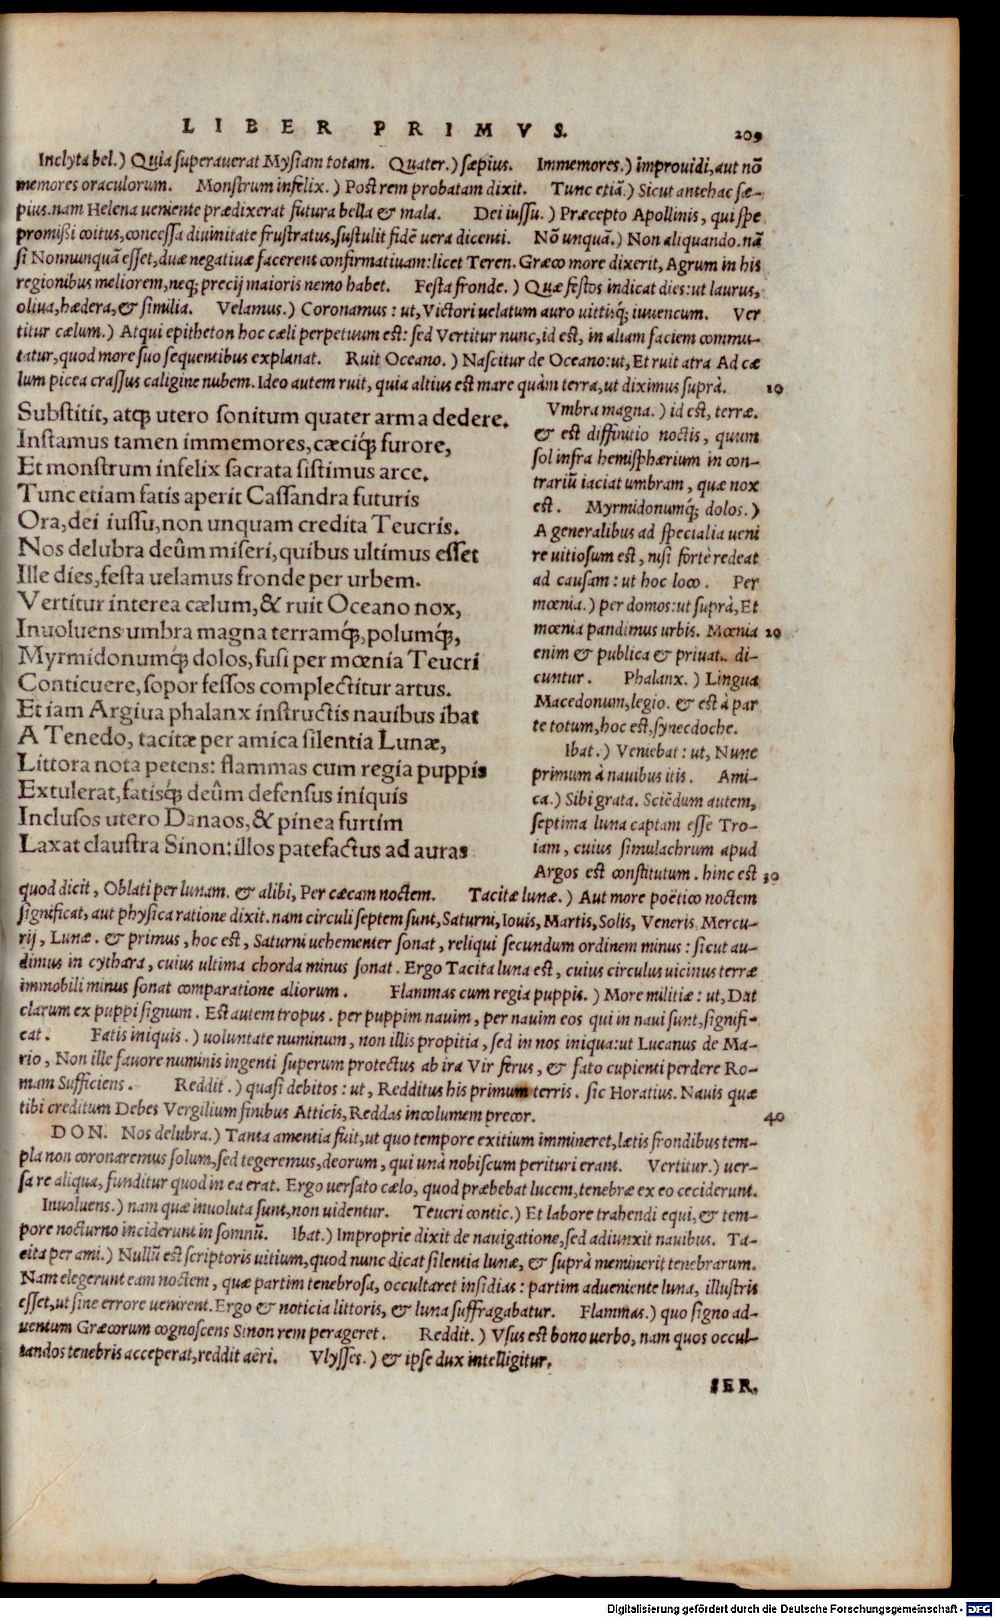 LIBER PRIMVS. 209
Inclyta bel.) Quia superauerat Mysiam totam. Quater.) sæpius. Immemores.) improuidi, aut nõ
memores oraculorum. Monstrum infelix.) Post rem probatam dixit. Tunc etiã.) Sicut antehac sæ-
pius. nam Helena ueniente prædixerat futura bella & mala. Dei iussu.) Præcepto Apollinis, qui spe
promißi coitus, concessa diuinitate frustratus, sustulit fidẽ uera dicenti. Nõ unquã.) Non aliquando. nã
si Nonnunquã esset, duæ negatiuæ facerent confirmatiuam: licet Teren. Græco more dixerit, Agrum in his
regionibus meliorem, neq; precij maioris nemo habet. Festa fronde.) Quæ festos indicat dies: ut laurus,
oliua, hædera, & similia. Velamus.) Coronamus: ut, Victori uelatum auro uittisq́; iuuencum. Ver
titur cælum.) Atqui epitheton hoc cæli perpetuum est: sed Vertitur nunc, id est, in aliam faciem commu-
tatur, quod more suo sequentibus explanat. Ruit Oceano.) Nascitur de Oceano: ut, Et ruit atra Ad cæ
lum picea crassus caligine nubem. Ideo autem ruit, quia altius est mare quàm terra, ut diximus suprà. 10
Substitit, atq; utero sonitum quater arma dedere.
Instamus tamen immemores, cæciq́; furore,
Et monstrum infelix sacrata sistimus arce.
Tunc etiam fatis aperit Cassandra futuris
Ora, dei iussu, non unquam credita Teucris.
Nos delubra deûm miseri, quibus ultimus esset
Ille dies, festa uelamus fronde per urbem.
Vertitur interea cælum, & ruit Oceano nox,
Inuoluens umbra magna terramq́;, polumq́;,
Myrmidonumq́; dolos, fusi per mœnia Teucri
Conticuere, sopor fessos complectitur artus.
Et iam Argiua phalanx instructis nauibus ibat
A Tenedo, tacitæ per amica silentia Lunæ,
Littora nota petens: flammas cum regia puppis
Extulerat, fatisq́; deûm defensus iniquis
Inclusos utero Danaos, & pinea furtim
Laxat claustra Sinon: illos patefactus ad auras
Vmbra magna.) id est, terræ.
& est diffinitio noctis, quum
sol infra hemisphærium in con-
trariũ iaciat umbram, quæ nox
est. Myrmidonumq́; dolos.)
A generalibus ad specialia ueni
re uitiosum est, nisi fortè redeat
ad causam: ut hoc loco. Per
mœnia.) per domos: ut suprà, Et
mœnia pandimus urbis. Mœnia 20
enim & publica & priuata di-
cuntur. Phalanx.) Lingua
Macedonum, legio. & est à par
te totum, hoc est, synecdoche.
Ibat.) Veniebat: ut, Nunc
primum à nauibus itis. Ami-
ca.) Sibi grata. Sciẽdum autem,
septima luna captam esse Tro-
iam, cuius simulachrum apud
Argos est constitutum. hinc est 30
quod dicit, Oblati per lunam. & alibi, Per cæcam noctem. Tacitæ lunæ.) Aut more poëtico noctem
significat, aut physica ratione dixit. nam circuli septem sunt, Saturni, Iouis, Martis, Solis, Veneris, Mercu-
rij, Lunæ. & primus, hoc est, Saturni uehementer sonat, reliqui secundum ordinem minus: sicut au-
dimus in cythara, cuius ultima chorda minus sonat. Ergo Tacita luna est, cuius circulus uicinus terræ
immobili minus sonat comparatione aliorum. Flammas cum regia puppis.) More militiæ: ut, Dat
clarum ex puppi signum. Est autem tropus. per puppim nauim, per nauim eos qui in naui sunt, signifi-
cat. Fatis iniquis.) uoluntate numinum, non illis propitia, sed in nos iniqua: ut Lucanus de Ma-
rio, Non ille fauore numinis ingenti superum protectus ab ira Vir ferus, & fato cupienti perdere Ro-
mam Sufficiens. Reddit.) quasi debitos: ut, Redditus his primum terris. sic Horatius. Nauis quæ
tibi creditum Debes Vergilium finibus Atticis, Reddas incolumem precor. 40
DON. Nos delubra.) Tanta amentia fuit, ut quo tempore exitium immineret, lætis frondibus tem-
pla non coronaremus solum, sed tegeremus, deorum, qui unà nobiscum perituri erant. Vertitur.) uer-
sa re aliqua, funditur quod in ea erat. Ergo uersato cælo, quod præbebat lucem, tenebræ ex eo ceciderunt.
Inuoluens.) nam quæ inuoluta sunt, non uidentur. Teucri contic.) Et labore trahendi equi, & tem-
pore nocturno inciderunt in somnũ. Ibat.) Improprie dixit de nauigatione, sed adiunxit nauibus. Ta-
cita per ami.) Nullũ est scriptoris uitium, quod nunc dicat silentia lunæ, & suprà meminerit tenebrarum.
Nam elegerunt eam noctem, quæ partim tenebrosa, occultaret insidias: partim adueniente luna, illustris
esset, ut sine errore uenirent. Ergo & noticia littoris, & luna suffragabatur. Flammas.) quo signo ad-
uentum Græcorum cognoscens Sinon rem perageret. Reddit.) Vsus est bono uerbo, nam quos occul-
tandos tenebris acceperat, reddit aëri. Vlysses.) & ipse dux intelligitur.
SER.
Digitalisierung gefördert durch die Deutsche Forschungsgemeinschaft - DFG